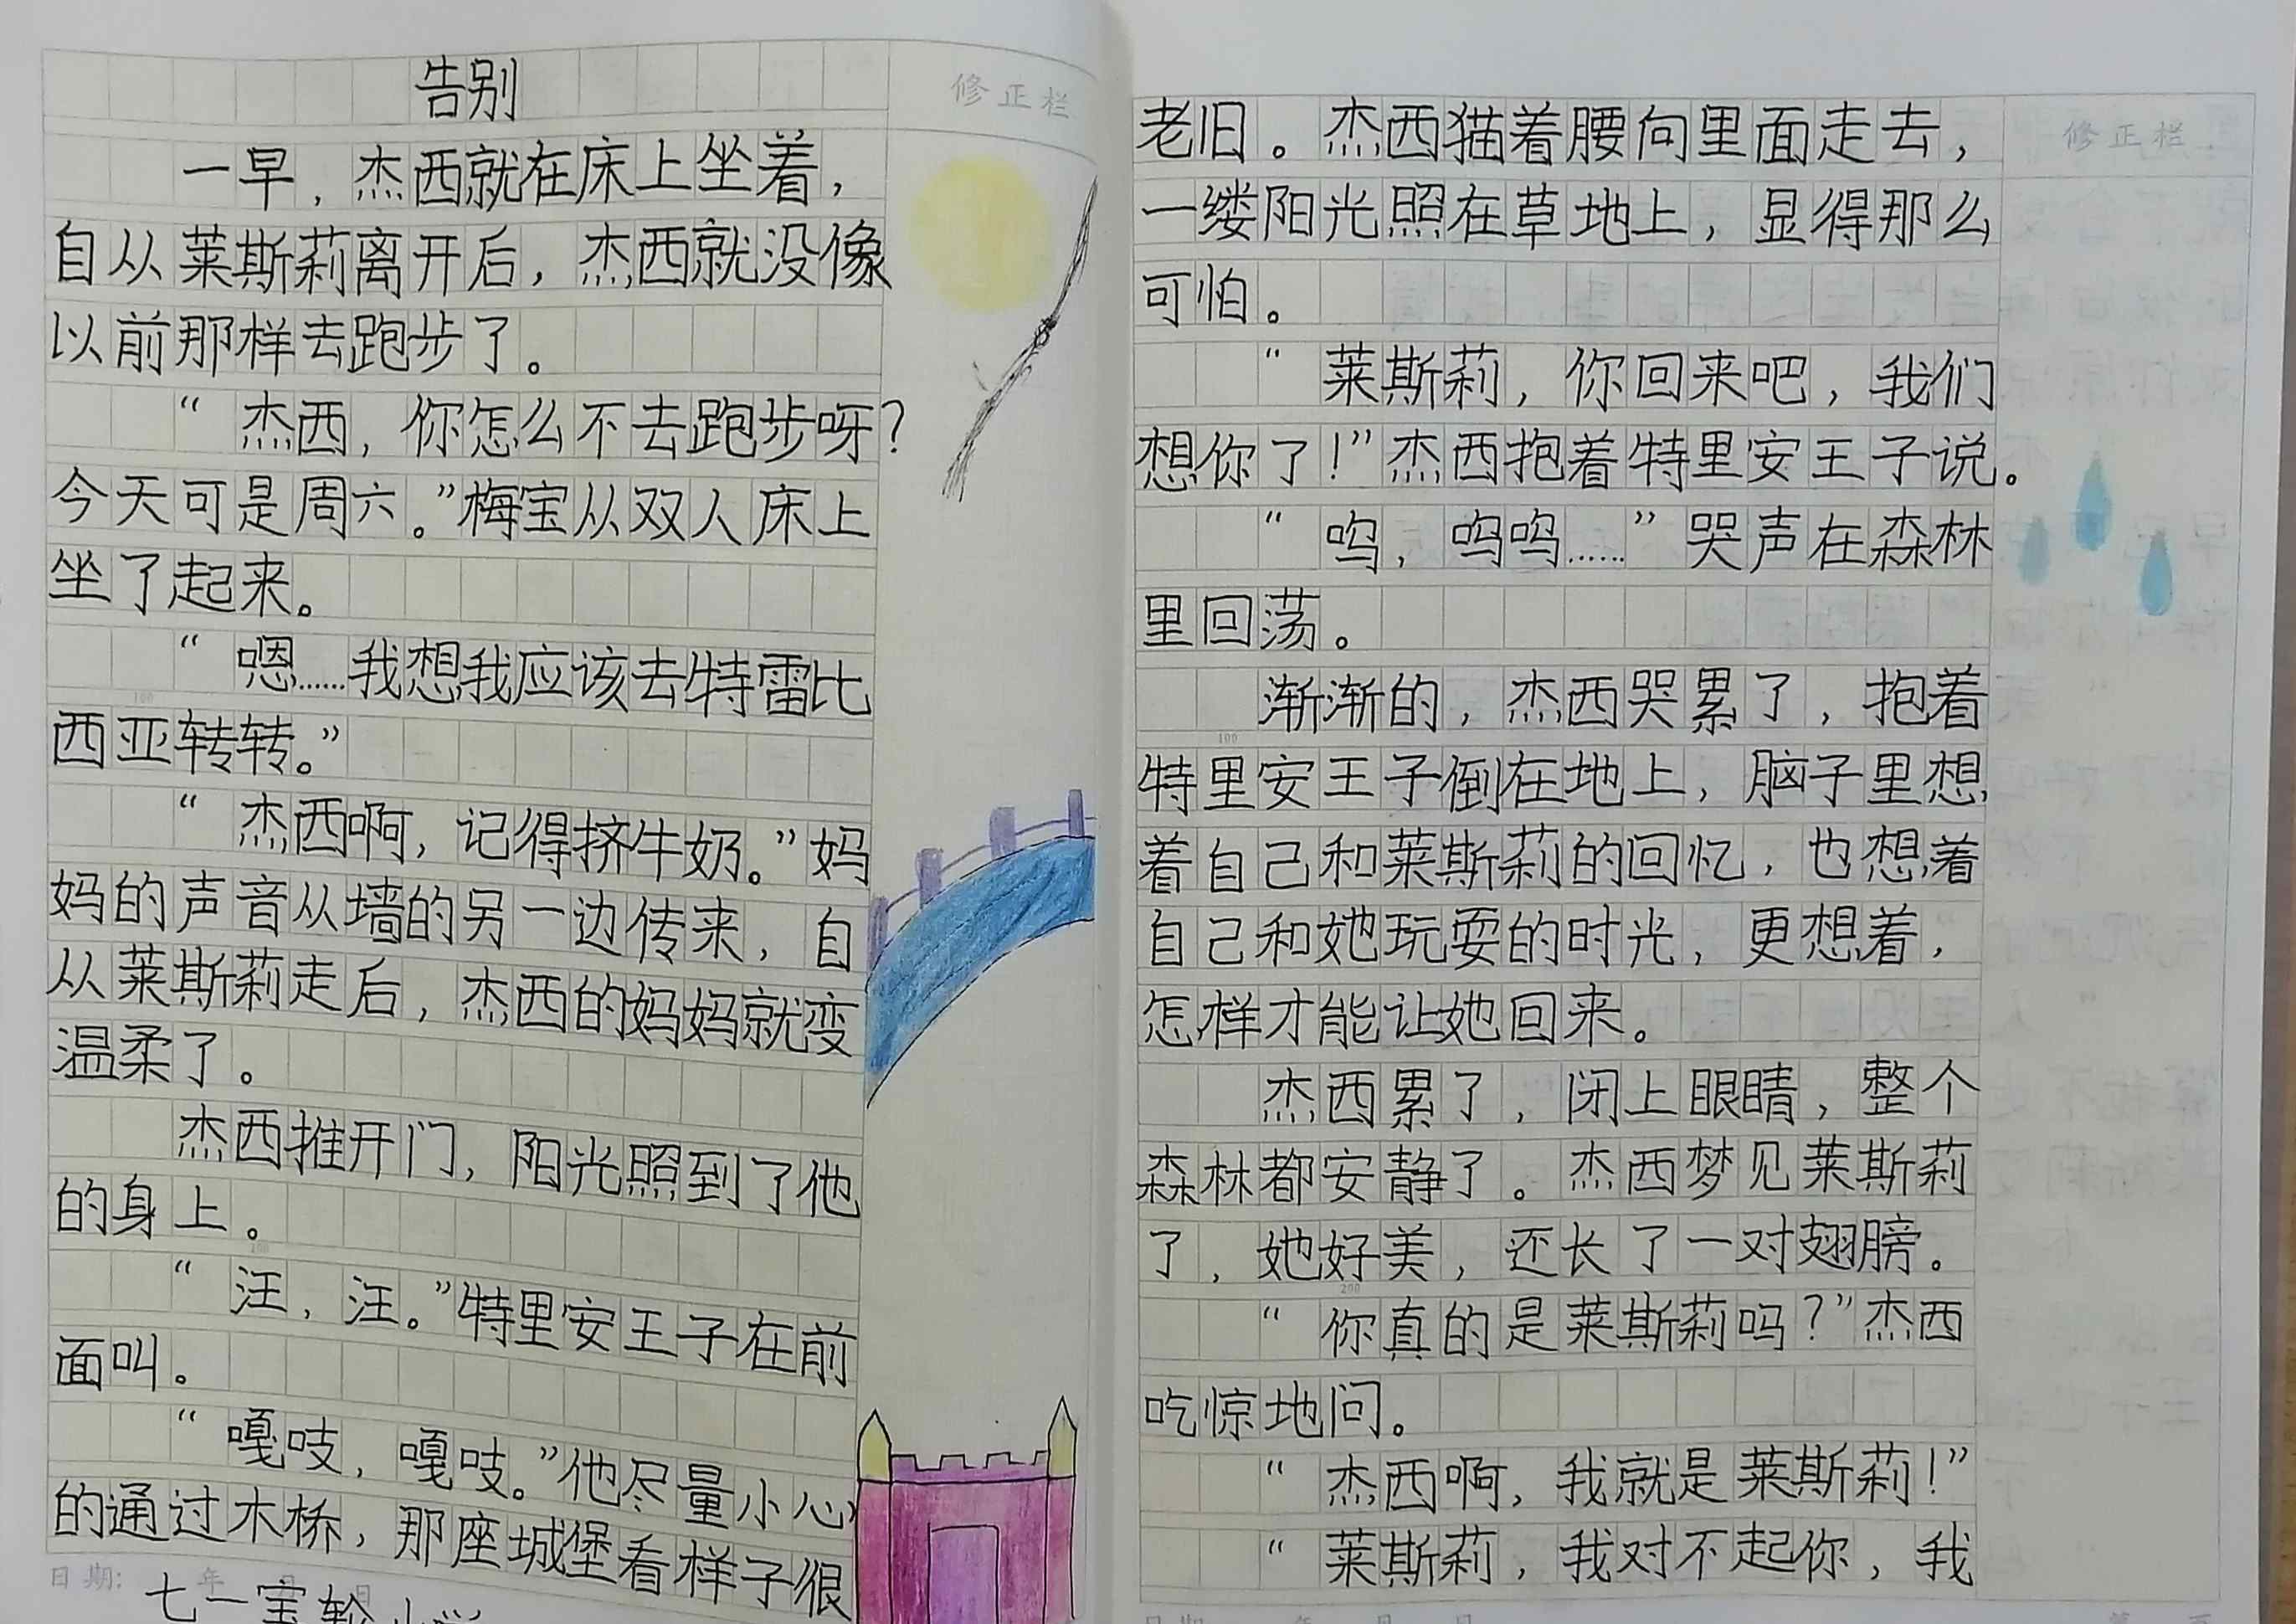 告别
修正栏
一早，杰西就在床上坐着，
自从莱斯莉离开后，杰西就没像
以前那样去跑步了。
“杰西，你怎么不去跑步呀？
今天可是周六。”梅宝从双人床上
坐了起来。
“嗯……我想我应该去特雷比
西亚转转。”
“杰西啊，记得挤牛奶。”妈
妈的声音从墙的另一边传来，自
从莱斯莉走后，杰西的妈妈就变
温柔了。
杰西推开门，阳光照到了他
的身上。
“汪，汪。”特里安王子在前
面叫。
“嘎吱，嘎吱。”他尽量小心
的通过木桥，那座城堡看样子很
日期： 年 月 日
七一宝轮小学
修正栏
老旧。杰西猫着腰向里面走去，
一缕阳光照在草地上，显得那么
可怕。
“莱斯莉，你回来吧，我们
想你了！”杰西抱着特里安王子说。
“呜，呜呜……”哭声在森林
里回荡。
渐渐的，杰西哭累了，抱着
特里安王子倒在地上，脑子里想
着自己和莱斯莉的回忆，也想着
自己和她玩耍的时光，更想着，
怎样才能让她回来。
杰西累了，闭上眼睛，整个
森林都安静了。杰西梦见莱斯莉
了，她好美，还长了一对翅膀。
“你真的是莱斯莉吗？”杰西
吃惊地问。
“杰西啊，我就是莱斯莉！”
“莱斯莉，我对不起你，我